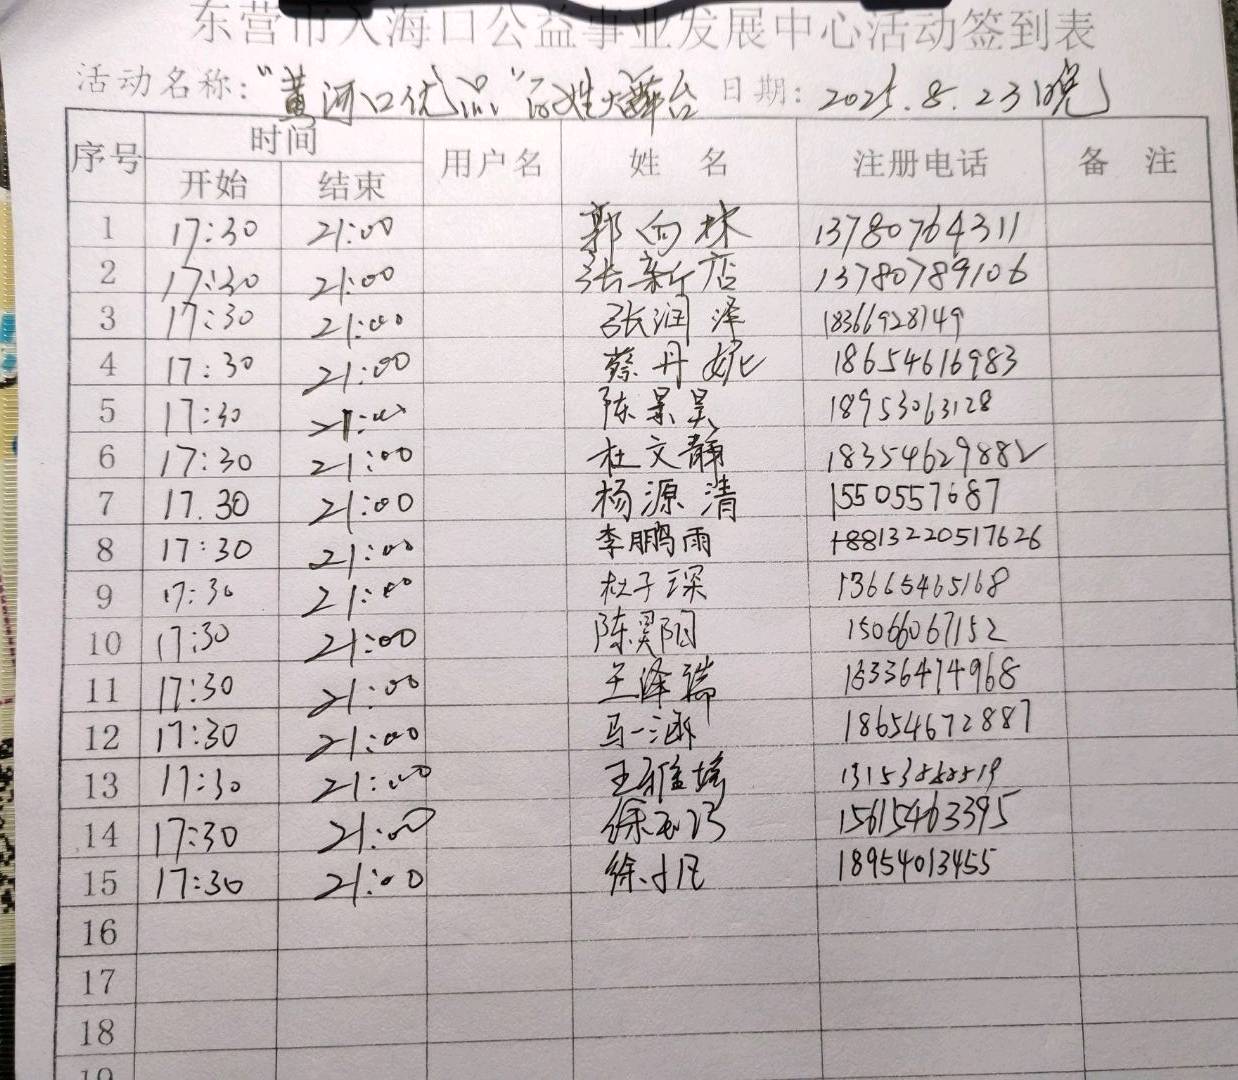 东营市入海口公益事业发展中心活动签到表
活动名称："黄河口优品"百姓大舞台 日期：2025.8.23晚
序号 时间 用户名 姓名 注册电话 备注
开始 结束
1 17:30 21:00 郭向林 13780764311
2 17:30 21:00 张新店 13780789106
3 17:30 21:00 张润泽 18366928749
4 17:30 21:00 蔡丹妮 18654616983
5 17:30 21:00 陈景昊 18953063128
6 17:30 21:00 杜文静 18354629882
7 17.30 21:00 杨源清 15505557687
8 17:30 21:00 李鹏雨 +8813220517626
9 17:30 21:00 杜子琛 13665465168
10 17:30 21:00 陈昊阳 15066067152
11 17:30 21:00 王泽瑞 15336474968
12 17:30 21:00 马一涵 18654672887
13 17:30 21:00 王雅婷
14 17:30 21:00 徐玉巧 15615463395
15 17:30 21:00 徐小凡 18954013455
16
17
18
19